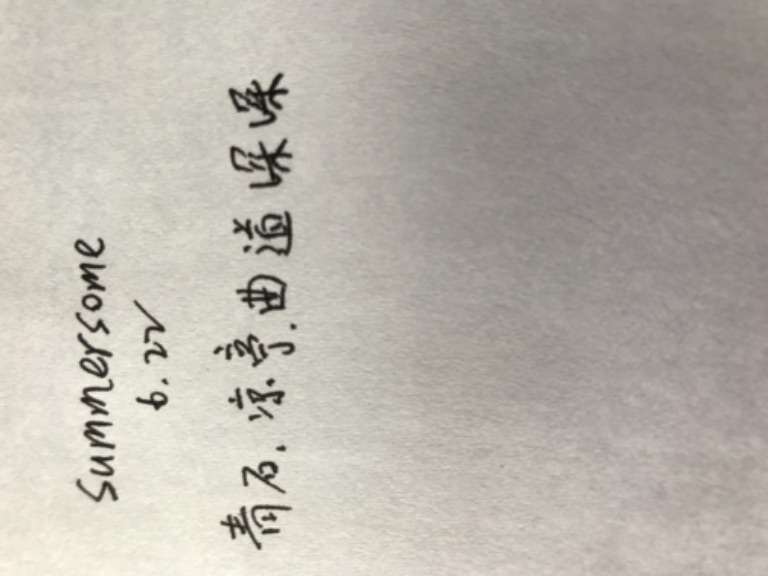 Summersome
6.22
青石.凉亭.曲道深深